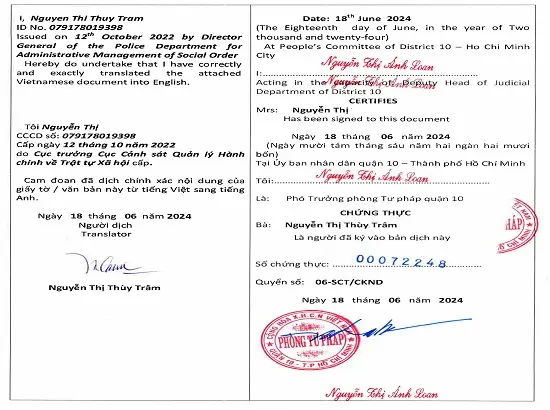 I, Nguyen Thi Thuy Tram
ID No. 079178019398
Issued on 12th October 2022 by Director
General of the Police Department for
Administrative Management of Social Order
Hereby do undertake that I have correctly
and exactly translated the attached
Vietnamese document into English.
Tôi Nguyễn Thị
CCCD số: 079178019398
Cấp ngày 12 tháng 10 năm 2022
do Cục trưởng Cục Cảnh sát Quản lý Hành
chính về Trật tự Xã hội cấp.
Cam đoan đã dịch chính xác nội dung của
giấy tờ / văn bản này từ tiếng Việt sang tiếng
Anh.
Ngày 18 tháng 06 năm 2024
Người dịch
Translator
Nguyễn Thị Thùy Trâm
Date: 18th June 2024
(The Eighteenth day of June, in the year of Two
thousand and twenty-four)
At People's Committee of District 10 – Ho Chi Minh
City
I: Nguyễn Thị Ánh Loan
Acting in the capacity of Deputy Head of Judicial
Nguyễn Thị Ánh Loan
Department of District 10
CERTIFIES
Mrs: Nguyễn Thị
Has been signed to this document
Ngày 18 tháng 06 năm 2024
(Ngày mười tám tháng sáu năm hai ngàn hai mươi
bốn)
Tại Ủy ban nhân dân quận 10 – Thành phố Hồ Chí Minh
Tôi: Nguyễn Thị Ánh Loan
Là: Phó Trưởng phòng Tư pháp quận 10
CHỨNG THỰC
Bà: Nguyễn Thị Thùy Trâm
Là người đã ký vào bản dịch này
Số chứng thực: 00072248
Quyển số: 06-SCT/CKND
Ngày 18 tháng 06 năm 2024
CỘNG HÒA X.H.C.N VIỆT NAM
PHÒNG TƯ PHÁP
QUẬN 10 - T.P HỒ CHÍ MINH
Nguyễn Thị Ánh Loan